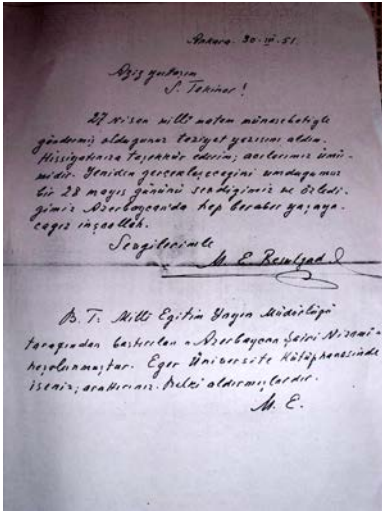 Ankara. 30.IV.51.
Aziz yurttaşım
S. Tekiner!
27 Nisan millî matem münasebetigle
göndermiş olduğunuz taziyet yazısını aldım.
Hissiyatınıza teşekkür ederim; acılarımız ümü-
midir. Yeniden gerçekleşeceğini umduğumuz
bir 28 mayıs gününü sevdigimiz ve özledi-
gimiz Azerbaycan'da hep beraber yaşaya-
cağız inşaallah.
Sevgilerimle
M. E. Resulzade
B. T. Milli Eğitim Yayın Müdürlüğü
tarafından bastırılan "Azerbaycan Şairi Nizami"
neşolunmuştur. Eger Üniversite Kütüphanesinde
iseniz, arattırınız. Belki aldırmışlardır.
M. E.